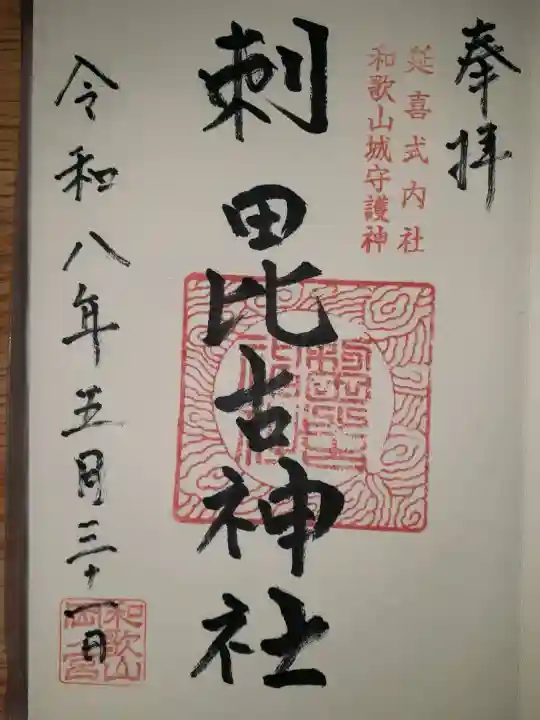 奉拝
延喜式内社
和歌山城守護神
刺田比古神社
令和八年五月三十一日
和歌山
岡宮